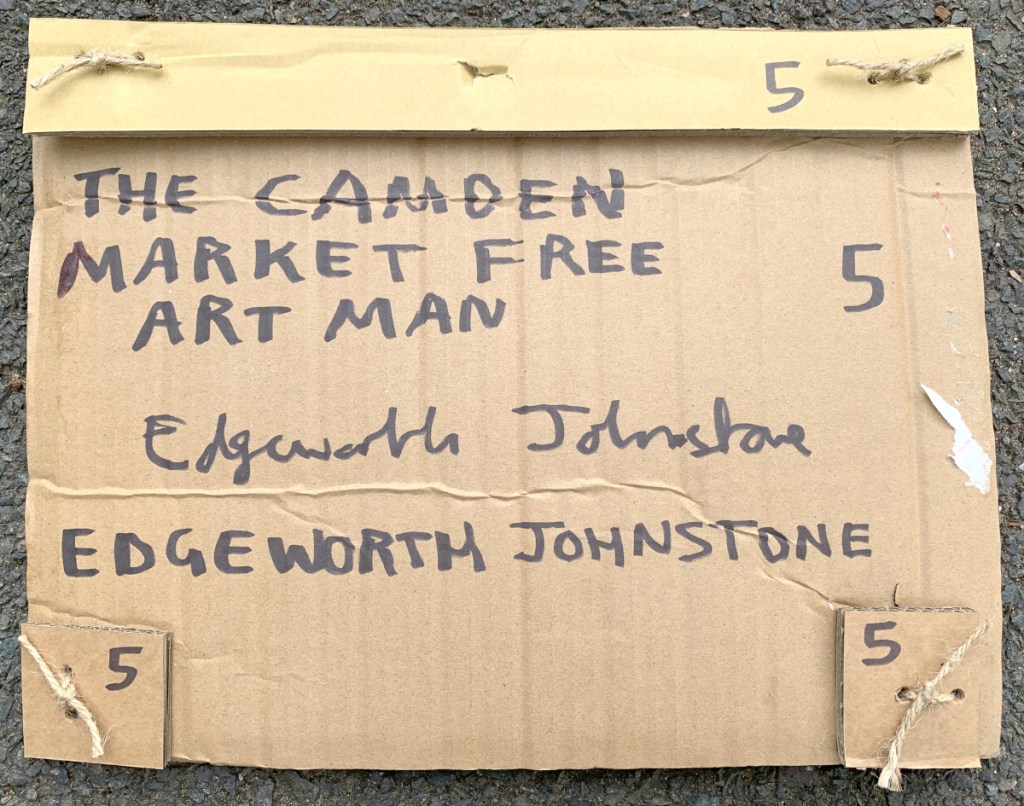 5
THE CAMDEN
MARKET FREE
5
ART MAN
Edgeworth Johnstone
EDGEWORTH JOHNSTONE
5
5